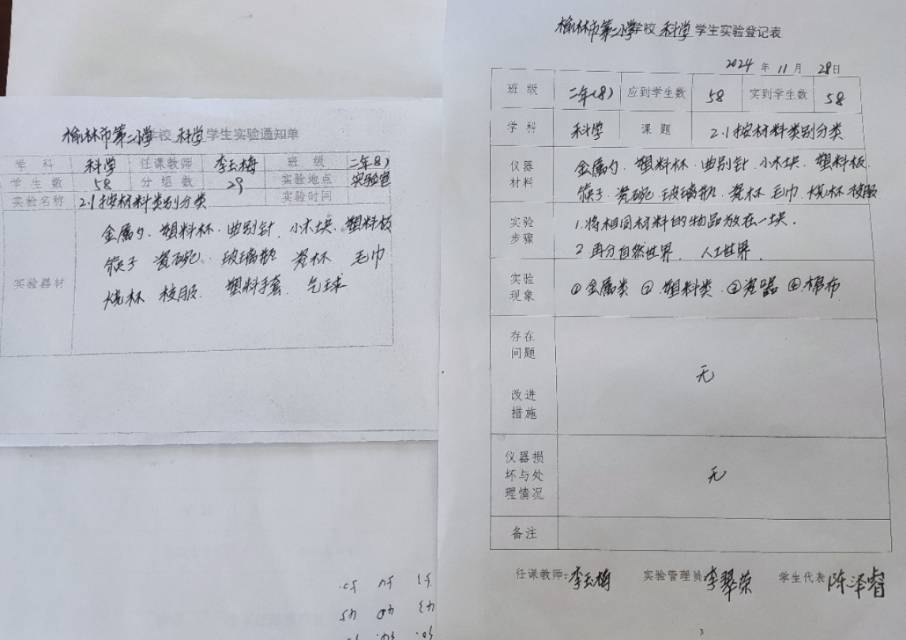 榆林市第二小学校 科学 学生实验通知单
学 科 科学 任课教师 李玉梅 班 级 二年(8)
学 生 数 58 分 组 数 29 实验地点 实验室
实验名称 2.1按材料类别分类 实验时间
实验器材
金属勺、塑料杯、曲别针、小木块、塑料板
筷子 瓷碗、玻璃瓶 瓷杯 毛巾
烧杯 校服、塑料手套、气球
榆林市第二小学校 科学 学生实验登记表
2024 年 11 月 28 日
班 级 二年(8) 应到学生数 58 实到学生数 58
学 科 科学 课 题 2.1按材料类别分类
仪器
材料
金属勺、塑料杯、曲别针、小木块、塑料板、
筷子、瓷碗、玻璃瓶、瓷杯 毛巾、烧杯 校服
实验
步骤
1.将相同材料的物品放在一块、
2 再分自然世界、人工世界、
实验
现象
①金属类 ② 塑料类 ③瓷器 ④棉布
存在
问题
改进
措施
无
仪器损
坏与处
理情况
无
备注
任课教师:李玉梅 实验管理员:李翠荣 学生代表 陈泽睿
3